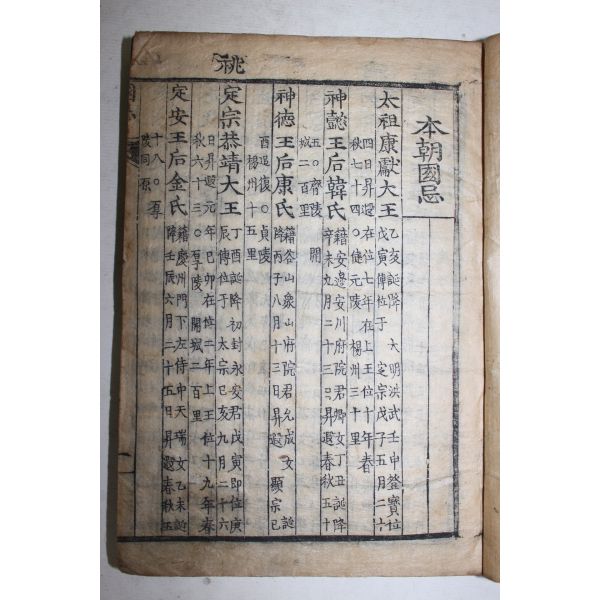 本朝國忌
太祖康獻大王
乙亥誕降 大明洪武壬申登寶位
戊寅傳位于 定宗戊子五月二十
四日昇遐在位七年在上王位十年春
秋七十四○健元陵 楊州三十里
神懿王后韓氏
籍安邊安川府院君卿女丁丑誕降
辛未九月二十三日昇遐春秋五十
五○齊陵 開
城二百里
神德王后康氏
籍谷山象山府院君允成女 誕
降丙子八月十三日昇遐 顯宗己
酉追復○貞陵
楊州十五里
祧
定宗恭靖大王
丁酉誕降初封永安君戊寅即位庚
辰傳位于 太宗己亥九月二十六
日昇遐元年己卯在位二年上王位十九年春
秋六十三○厚陵開城二百里
定安王后金氏
籍慶州門下左侍中天瑞女乙未誕
降壬辰六月二十五日昇遐春秋五
十八○厚
陵同原